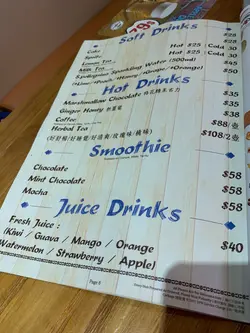 Soft Drinks
Coke $25
Sprite $25
Lemon Tea Hot $25 : Cold 30
Milk Tea Hot $25 : Cold 30
Sparkling Water (500ml) $45
$50
Hot Drinks
Marshmallow Chocolate 棉花糖朱古力 $35
Ginger Honey $35
Coffee $38
Herbal Tea $88/壺
$108/2
Smoothie
Chocolate $58
Mint Chocolate $58
Mocha $58
Juice Drinks
Fresh Juice :
(Kiwi / Guava / Mango / Orange $40
Watermelon / Strawberry / Apple)
Page 9